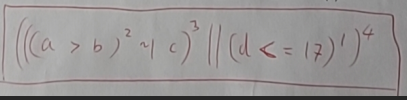 (((a > b)² ~| c)³ || (d <= 17)¹)⁴